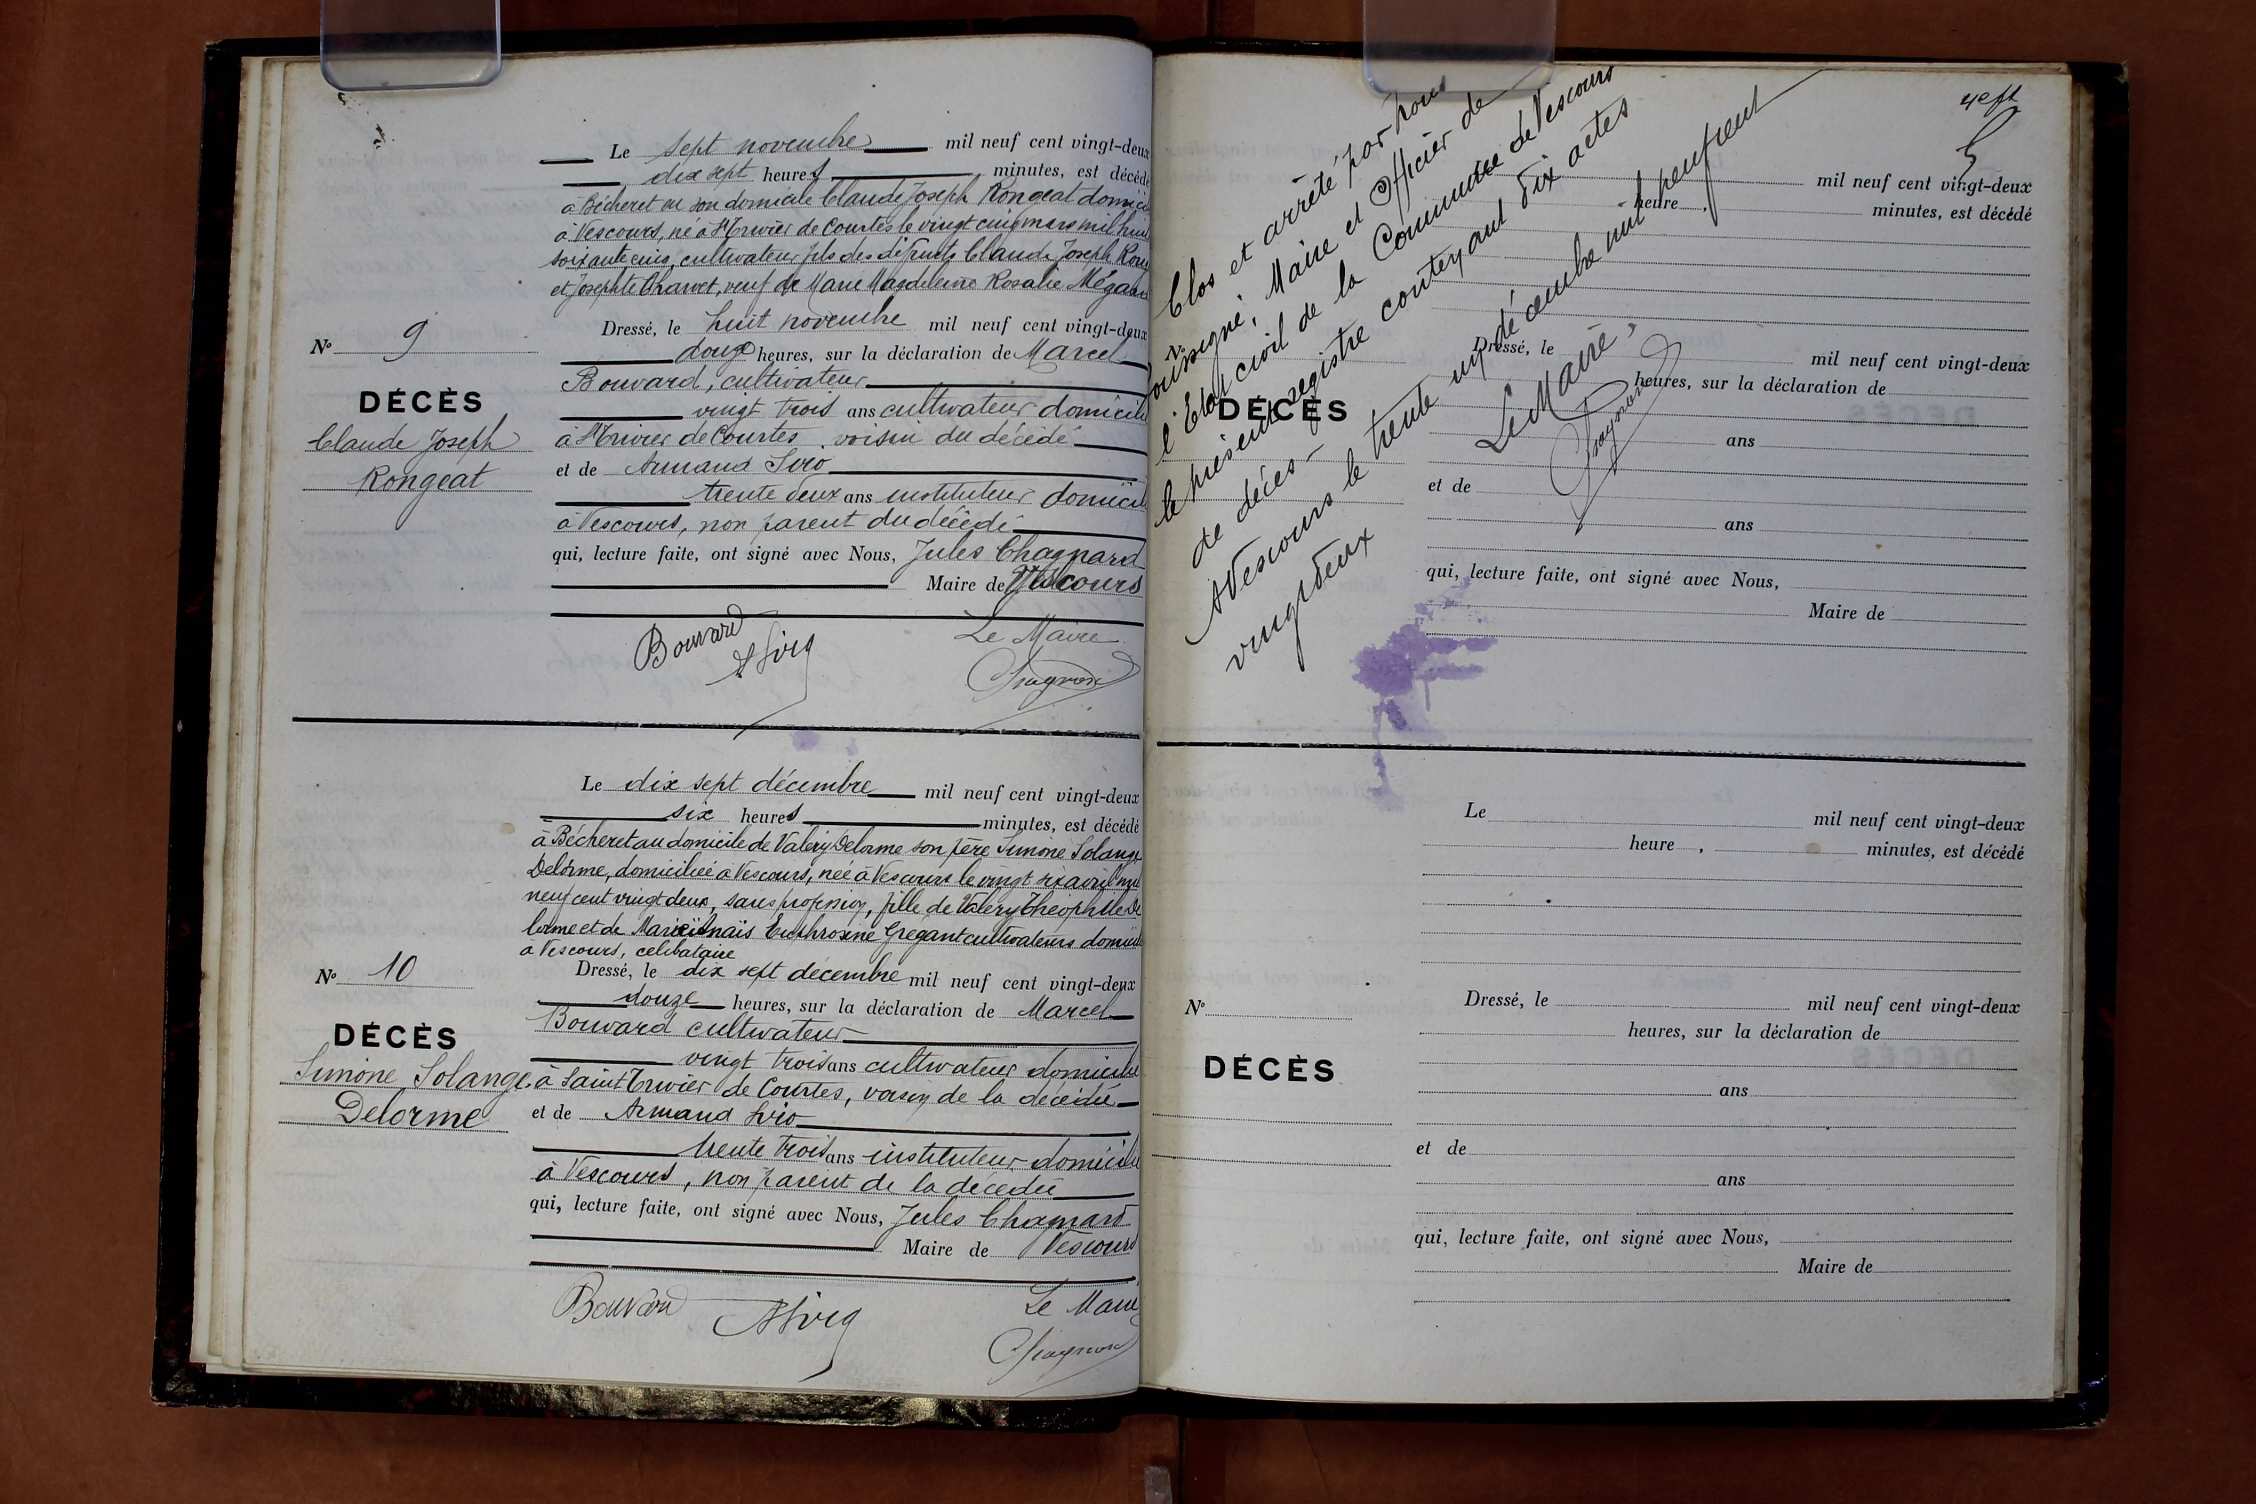 Le sept novembre mil neuf cent vingt-deux
dix sept heures minutes, est décédé
à Bécheret en son domicile Claude Joseph Rongeat domici
à Vescours, né à St Trivier de Courtes le vingt cinq mars mil huit
soixante cinq, cultivateur fils des défunts Claude Joseph Ron
et Josephte Charvet, veuf de Marie Magdeleine Rosalie
No 9
DÉCÈS
Claude Joseph
Rongeat
Dressé, le huit novembre mil neuf cent vingt-deux
douze heures, sur la déclaration de Marcel
Bouvard, cultivateur
vingt trois ans cultivateur domicilié
à St Trivier de Courtes voisin du décédé
et de Armand
trente deux ans instituteur domicilié
à Vescours, non parent du décédé
qui, lecture faite, ont signé avec Nous, Jules Chagnard
Maire de Vescours
Bouvard
Le Maire
Chagnard
Le dix sept décembre mil neuf cent vingt-deux
six heures minutes, est décédé
à Bécheret au domicile de Valéry Delorme son père Simone Solange
Delorme, domiciliée à Vescours, née à Vescours le vingt six avril mil
neuf cent vingt deux, sans profession, fille de Valéry Théophile De
lorme et de Euphrosine Grégant cultivateurs domicilié
à Vescours, célibataire
No 10
DÉCÈS
Simone Solange
Delorme
Dressé, le dix sept décembre mil neuf cent vingt-deux
douze heures, sur la déclaration de Marcel
Bouvard cultivateur
vingt trois ans cultivateur domicilié
à Saint Trivier de Courtes, voisin de la décédée
et de Armand
trente trois ans instituteur domicilié
à Vescours, non parent de la décédée
qui, lecture faite, ont signé avec Nous, Jules Chagnard
Maire de Vescours
Bouvard
Le Maire
Chagnard
Clos et arrêté par nous
soussigné, Maire et Officier de
l'Etat civil de la Commune de Vescours
le présent registre contenant dix actes
de décès -
A Vescours le trente un décembre mil neuf cent
vingt deux
Le Maire,
Chagnard
mil neuf cent vingt-deux
heure minutes, est décédé
No
DÉCÈS
Dressé, le mil neuf cent vingt-deux
heures, sur la déclaration de
ans
et de
ans
qui, lecture faite, ont signé avec Nous,
Maire de
Le mil neuf cent vingt-deux
heure , minutes, est décédé
No
DÉCÈS
Dressé, le mil neuf cent vingt-deux
heures, sur la déclaration de
ans
et de
ans
qui, lecture faite, ont signé avec Nous,
Maire de